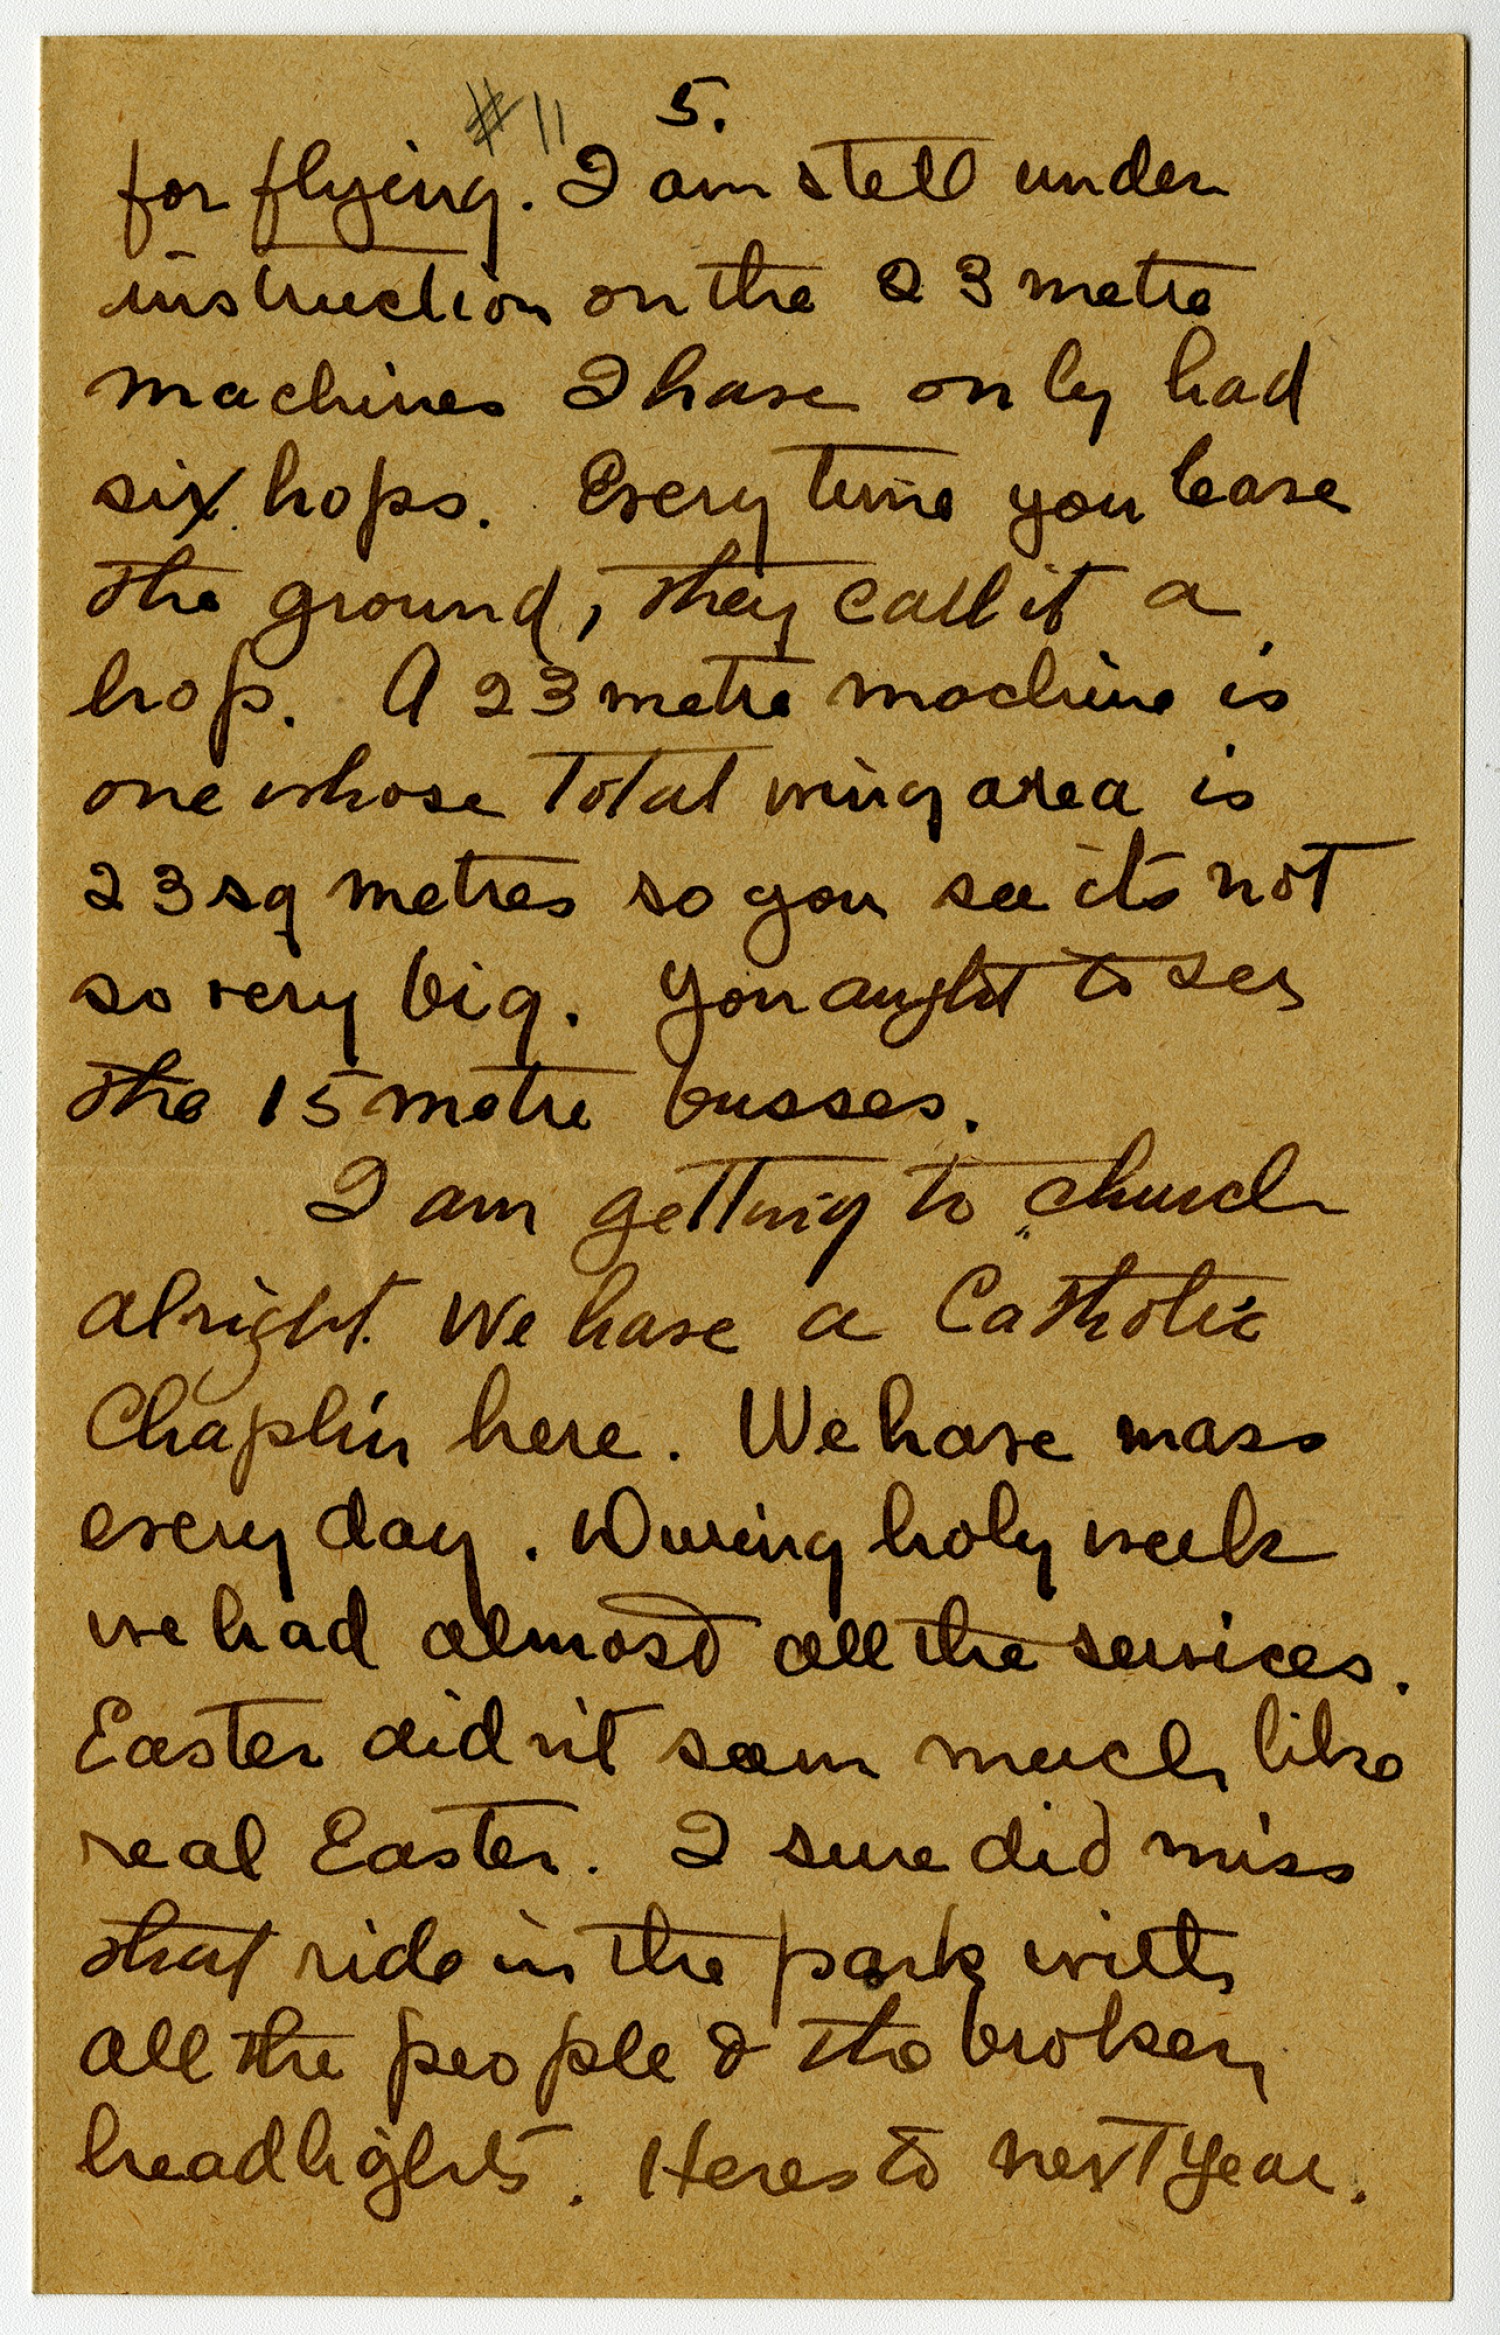 #11 5.
for flying. I am still under
instruction on the 23 metre
machines I have only had
six hops. Every time you leave
the ground, they call it a
hop. A 23 metre machine is
one whose total wing area is
23 sq metres so you see its not
so very big. You aught to see
the 15 metre busses.
I am getting to church
alright. We have a Catholic
Chaplin here. We have mass
every day. During holy week
we had almost all the services.
Easter didn't seem much like
real Easter. I sure did miss
that ride in the park with
all the people & the broken
headlights. Heres to next year.